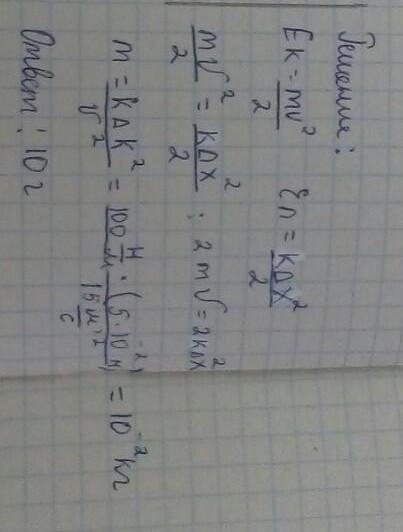 Решение:
Eк = mv²/2   Eп = KΔX²/2
mv²/2 = KΔX²/2 ; 2mv = 2KΔX²
m = KΔK²/v² = 100 Н/м · (5·10⁻² м)²/(5 м/с)² = 10⁻² кг
Ответ: 10 г